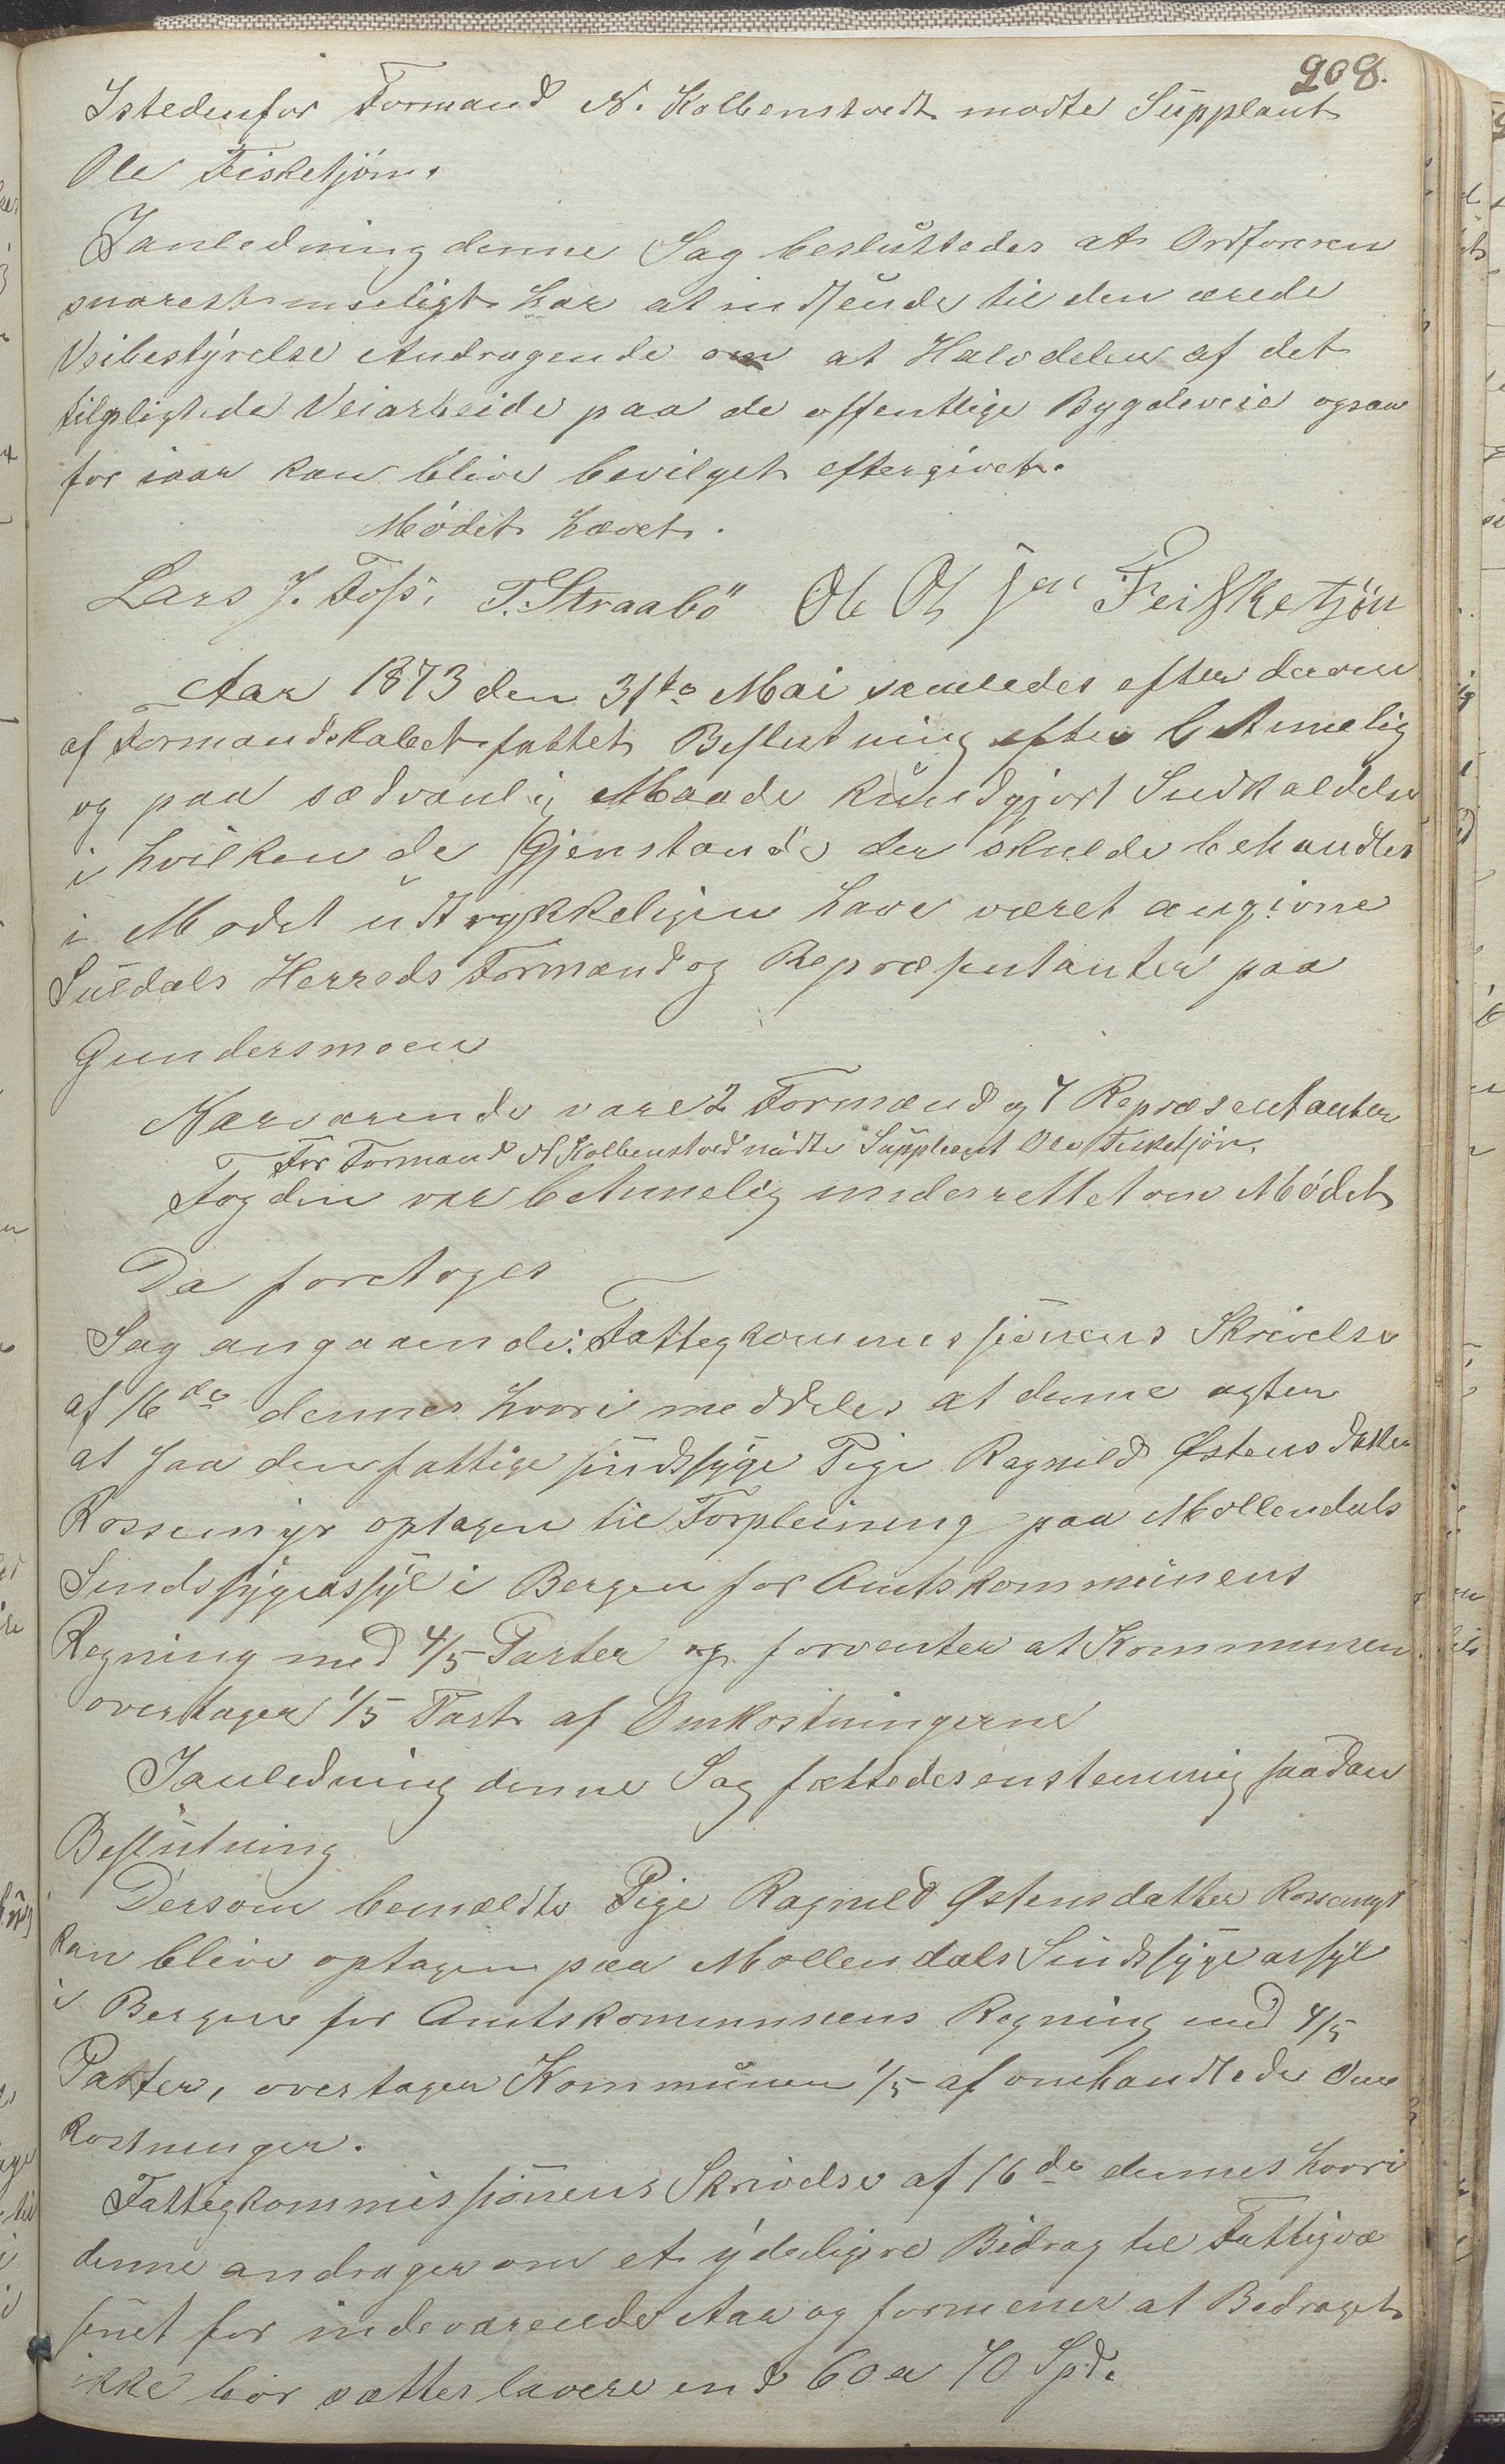 208.
Istedenfor Formand N. Kolbenstvedt mødte Supplant
Ole Fisketjøn.
Ianledning denne Sag besluttedes at Ordføreren
snarest mueligt har at indsende til den ærede
Veibestyrelse Andragende om at Halvdelen af det
tilpligtede Veiarbeide paa de offentlige Bygdeveie ogsaa
for iaar kan blive bevilget eftergivet.
Mødet hævet.
Lars J. Foss, T. Straabö Ole Ols Jøn Feisketjön
Aar 1873 den 31te Mai samledes efter derom
af Formandskabet fattet Beslutning efter betimelig
og paa sædvanlig Maade kundgjort Indkaldelse
i hvilken de Gjenstande der skulde behandles
i Mødet udtrykkeligen have været angivne
Suldals Herreds Formænd og Repræsentanter paa
Gundersmoen
Nærværende vare 2 Formænd og 7 Repræsentanter
For Formand N Kolbenstvedt mødte Suppleant Ole Fisketjøn.
Fogden var betimelig underrettet om Mødet
Da foretoges
Sag angaaende: Fattigkommissionens Skrivelse
af 16de dennes hvori meddeles at denne agter
at faa den fattige sindssyge Pige Ragnild Østensdatter
Rossemyr optagen til Forpleining paa Møllendals
Sindssygeassyl i Bergen for Amtskommunens
Regning med 4/5 Parter og forventer at Kommunen
overtager 1/5 Part af Omkostningerne
Ianledning denne Sag fattedes enstemmig saadan
Beslutning
Dersom bemældte Pige Ragnild Østensdatter Rossemyr
kan blive optagen paa Møllendals Sindssygeassyl
i Bergen for Amtskommunens Regning med 4/5
Parter, overtager Kommunen 1/5 af omhandlede Om
kostninger.
Fattigkommissionens Skrivelse af 16de dennes hvori
denne andrager om et yderligere Bidrag til Fattigvæ
senet for indeværende Aar og formener at Bedraget
ikke bør sættes lavere end 60 a 70 Spd.